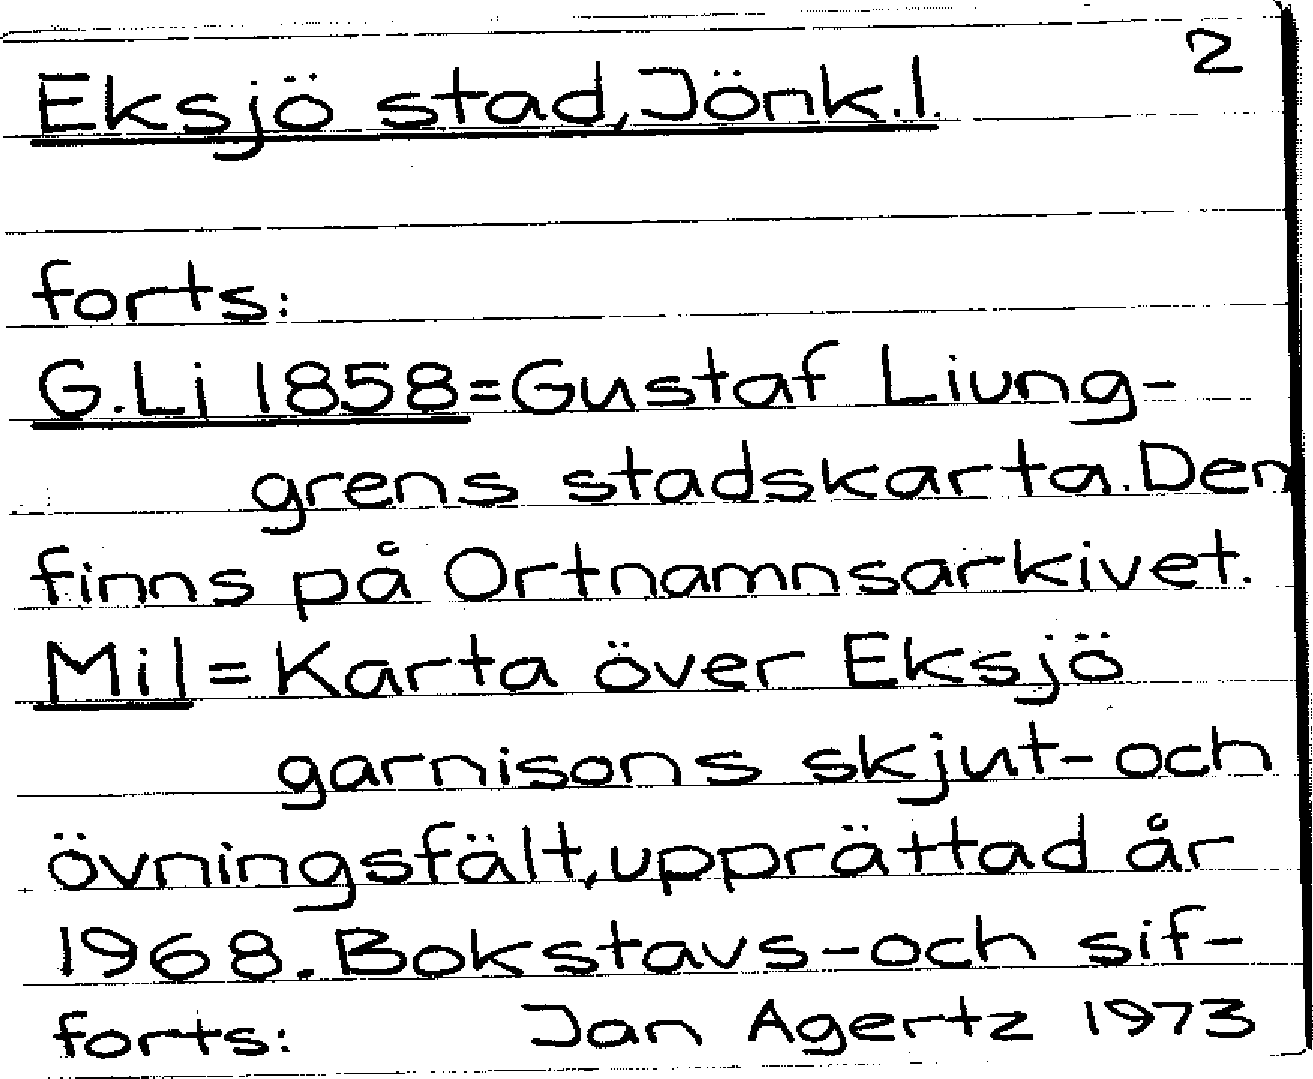 2
Eksjö stad, Jönk.l.
forts:
G.Li 1858=Gustaf Liung-
grens stadskarta. Den
finns på Ortnamnsarkivet.
Mil = Karta över Eksjö
garnisons skjut- och
övningsfält, upprättad år
1968. Bokstavs- och sif-
forts: Jan Agertz 1973